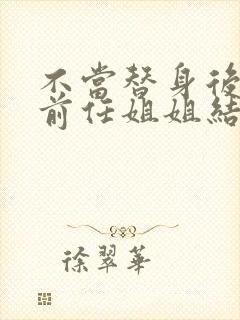 不當替身後
前任姐姐結
徐翠華